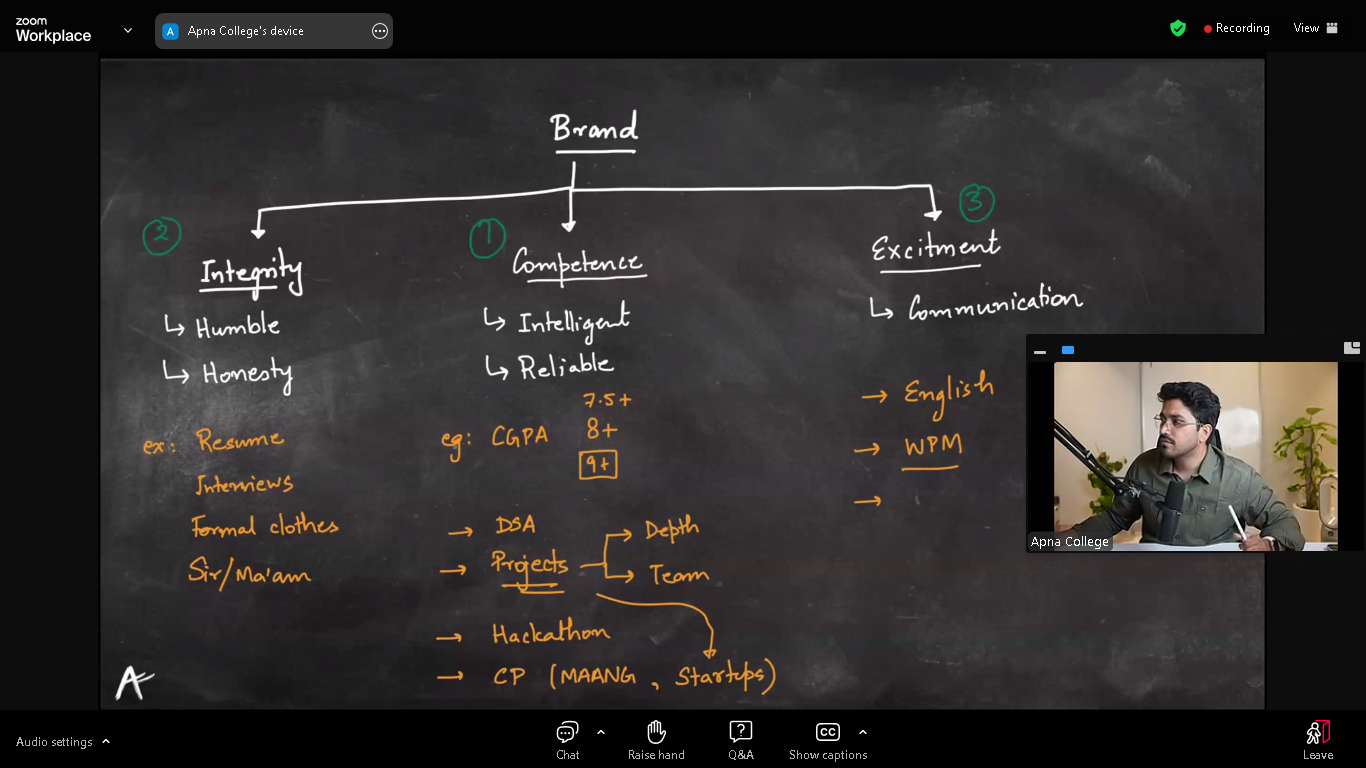 zoom
Workplace
A Apna College's device
Recording
View
Brand
2
Integrity
↳ Humble
↳ Honesty
ex: Resume
Interviews
Formal clothes
Sir/Ma'am
1
Competence
↳ Intelligent
↳ Reliable
7.5+
eg: CGPA 8+
9+
→ DSA
→ Projects → Depth
→ Team
→ Hackathon
→ CP (MAANG, Startups)
3
Excitment
↳ Communication
→ English
→ WPM
→
Apna College
A
Audio settings
Chat
Raise hand
Q&A
CC
Show captions
Leave